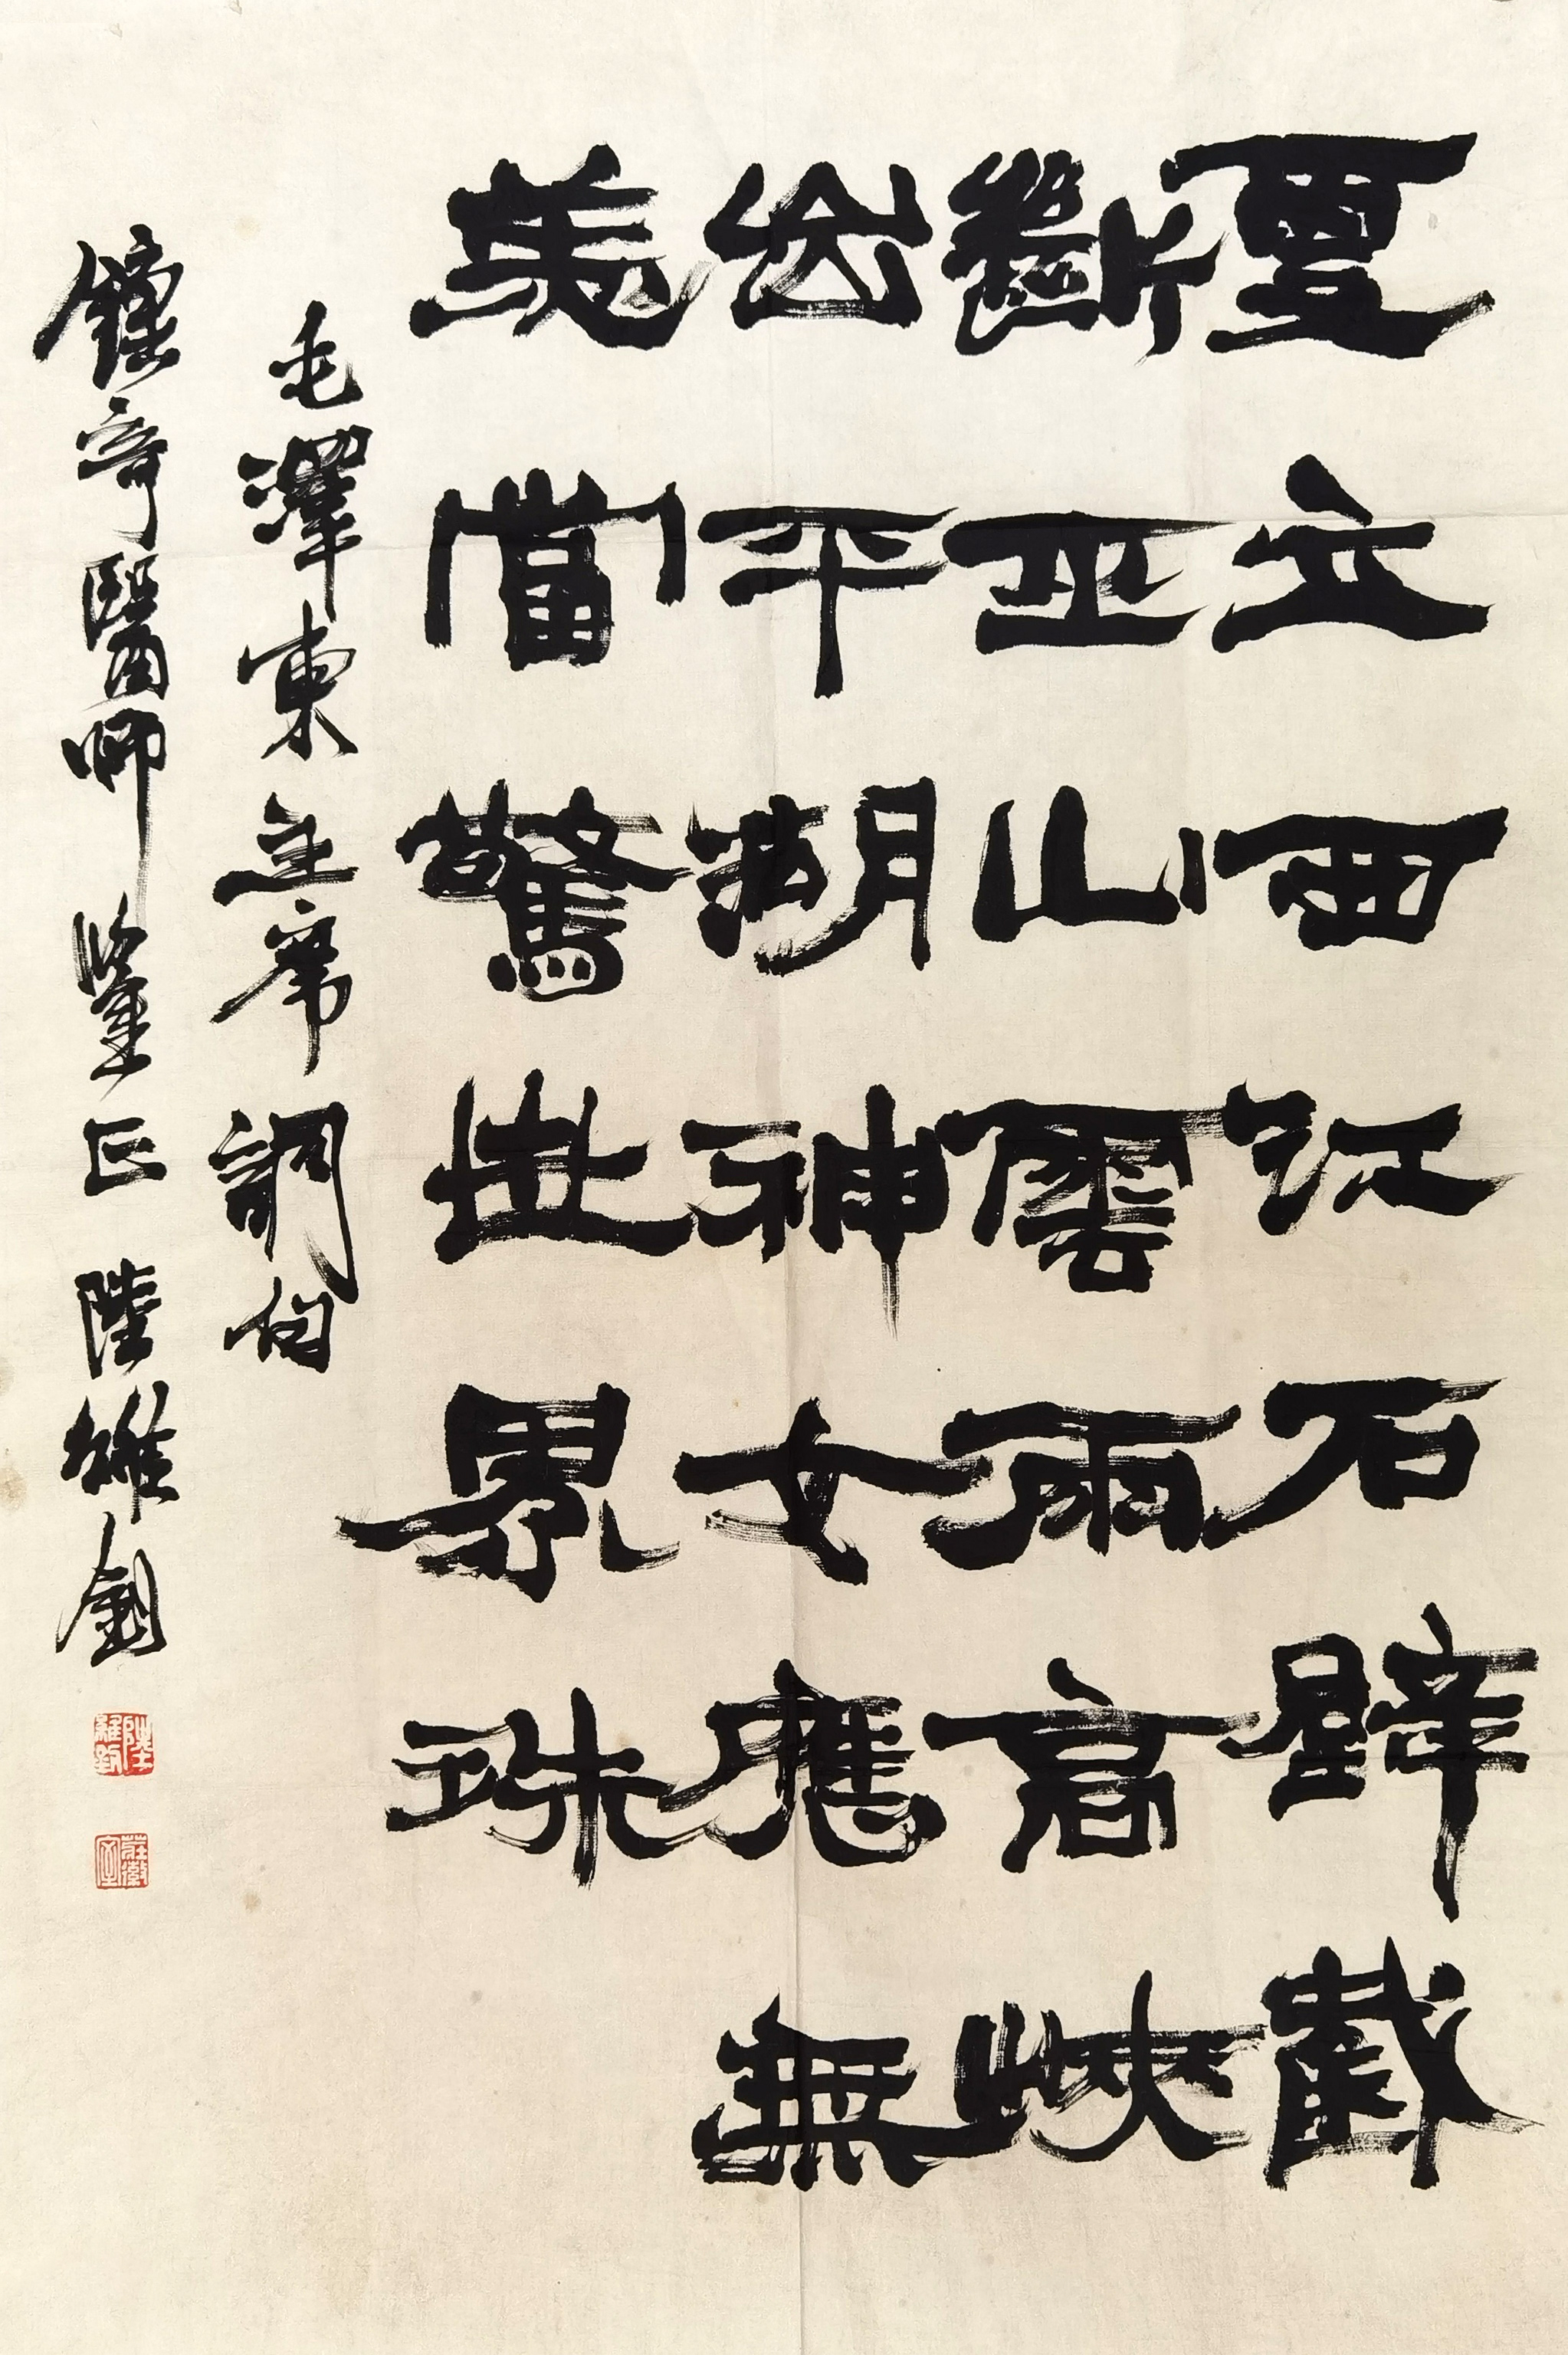 更立西江石壁截
斷巫山雲雨高峽
出平湖神女應無
恙當驚世界殊
毛澤東主席詞句
奇醫師鑒正 陸維釗
陸維釗
莊徽室